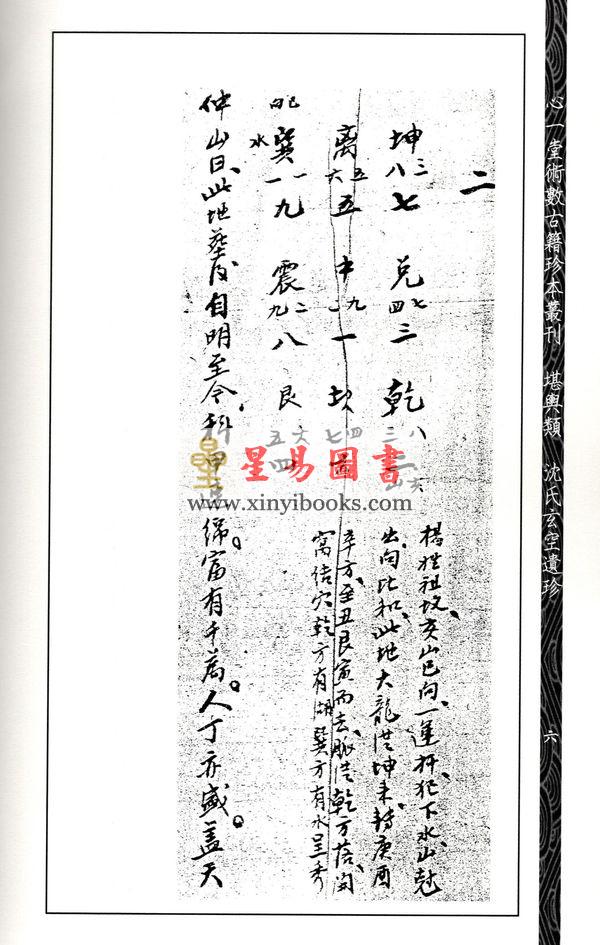 心一堂術數古籍珍本叢刊　堪輿類　沈氏玄空遺珍
六
二
坤 三 八 七 兌 七 四 三 乾 八 三 二 山 亥
离 五 六 五 中 九 一 一 坎 四 七
巳向 巽 水 一 一 九 震 二 九 八 艮 六 五 四
楊姓祖坟、亥山巳向、一運扞、犯下水、山尅
出向比和、此地大龍從坤来、轉庚酉
辛方、至丑艮寅而去、脈從乾方落、開
窩结穴、乾方有湖、巽方有水呈秀
仲山曰、此地葬后、自明至今科甲綿。富有千萬。人丁亦盛。蓋天
星易圖書
www.xinyibooks.com